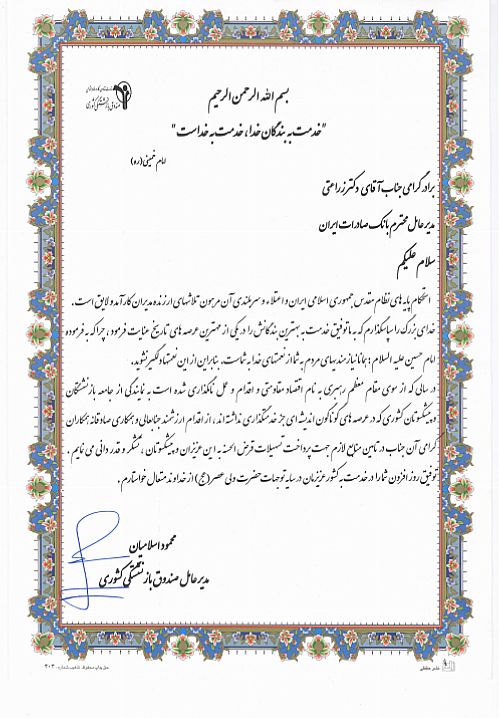 صندوق بازنشستگی کشوری
بسم الله الرحمن الرحیم
"خدمت به بندگان خدا، خدمت به خداست"
امام خمینی (ره)
برادر گرامی جناب آقای دکتر زراعتی
مدیرعامل محترم بانک صادرات ایران
سلام علیکم
استحکام پایه های نظام مقدس جمهوری اسلامی ایران و اعتلاء و سربلندی آن مرهون تلاشهای ارزنده مدیران کارآمد و لایق است.
خدای بزرگ را سپاسگذارم که به ما توفیق خدمت به بهترین بندگانش را در یکی از مهمترین عرصه های تاریخ عنایت فرمود، چرا که به فرموده
امام حسین علیه السلام: همانا نیازمندیهای مردم به شما از نعمتهای خدا به شماست. بنابراین از این نعمتها دلگیر نشوید.
در سالی که از سوی مقام معظم رهبری به نام اقتصاد مقاومتی و اقدام و عمل نامگذاری شده است به نمایندگی از جامعه بازنشستگان
و پیشکسوتان کشوری که در عرصه های گوناگون اندیشه ای جز خدمتگذاری نداشته اند، از اقدام ارزشمند جنابعالی و همکاری صادقانه همکاران
گرامی آن جناب در تامین منابع لازم جهت پرداخت تسهیلات قرض الحسنه به این عزیزان و پیشکسوتان، تشکر و قدردانی می نمایم.
توفیق روز افزون شما را در خدمت به کشور عزیزمان در سایه توجهات حضرت ولی عصر (عج) از خداوند متعال خواستارم.
محمود اسلامیان
مدیرعامل صندوق بازنشستگی کشوری
حق چاپ محفوظ تذهیب شماره: ۳۰۳